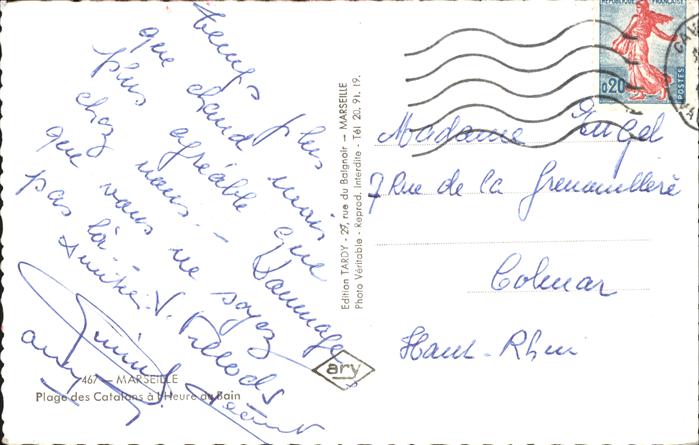 temps plus
que chaud mais
plus agréable que
chez nous. - Dommage
que vous ne soyez
pas là. -
Amitiés
467 - MARSEILLE
Plage des Catalans à l'Heure du Bain
Edition TARDY - 29, rue du Baignoir - MARSEILLE
Photo Véritable - Reprod. Interdite - Tél. 20. 91. 19.
ary
REPUBLIQUE FRANÇAISE
0,20
POSTES
Madame
7 Rue de la Grenouillère
Colmar
Haut-Rhin